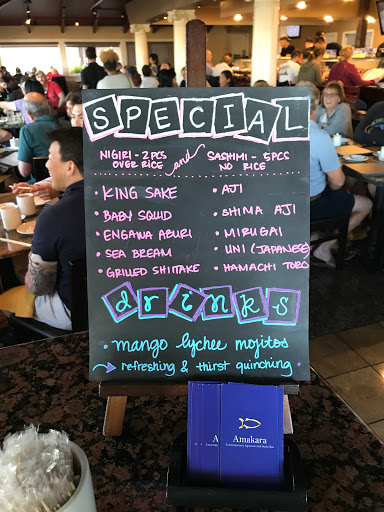 SPECIAL
NIGIRI - 2 PCS OVER RICE
and
SASHIMI - 5PCS NO RICE
• KING SAKE
• BABY SQUID
• ENGAWA ABURI
• SEA BREAM
• GRILLED SHIITAKE
• AJI
• SHIMA AJI
• MIRUGAI
• UNI (JAPANESE)
• HAMACHI TORO
drinks
• mango lychee mojitos
→ refreshing & thirst quinching
Amakara
Contemporary Japanese and Sushi Bar